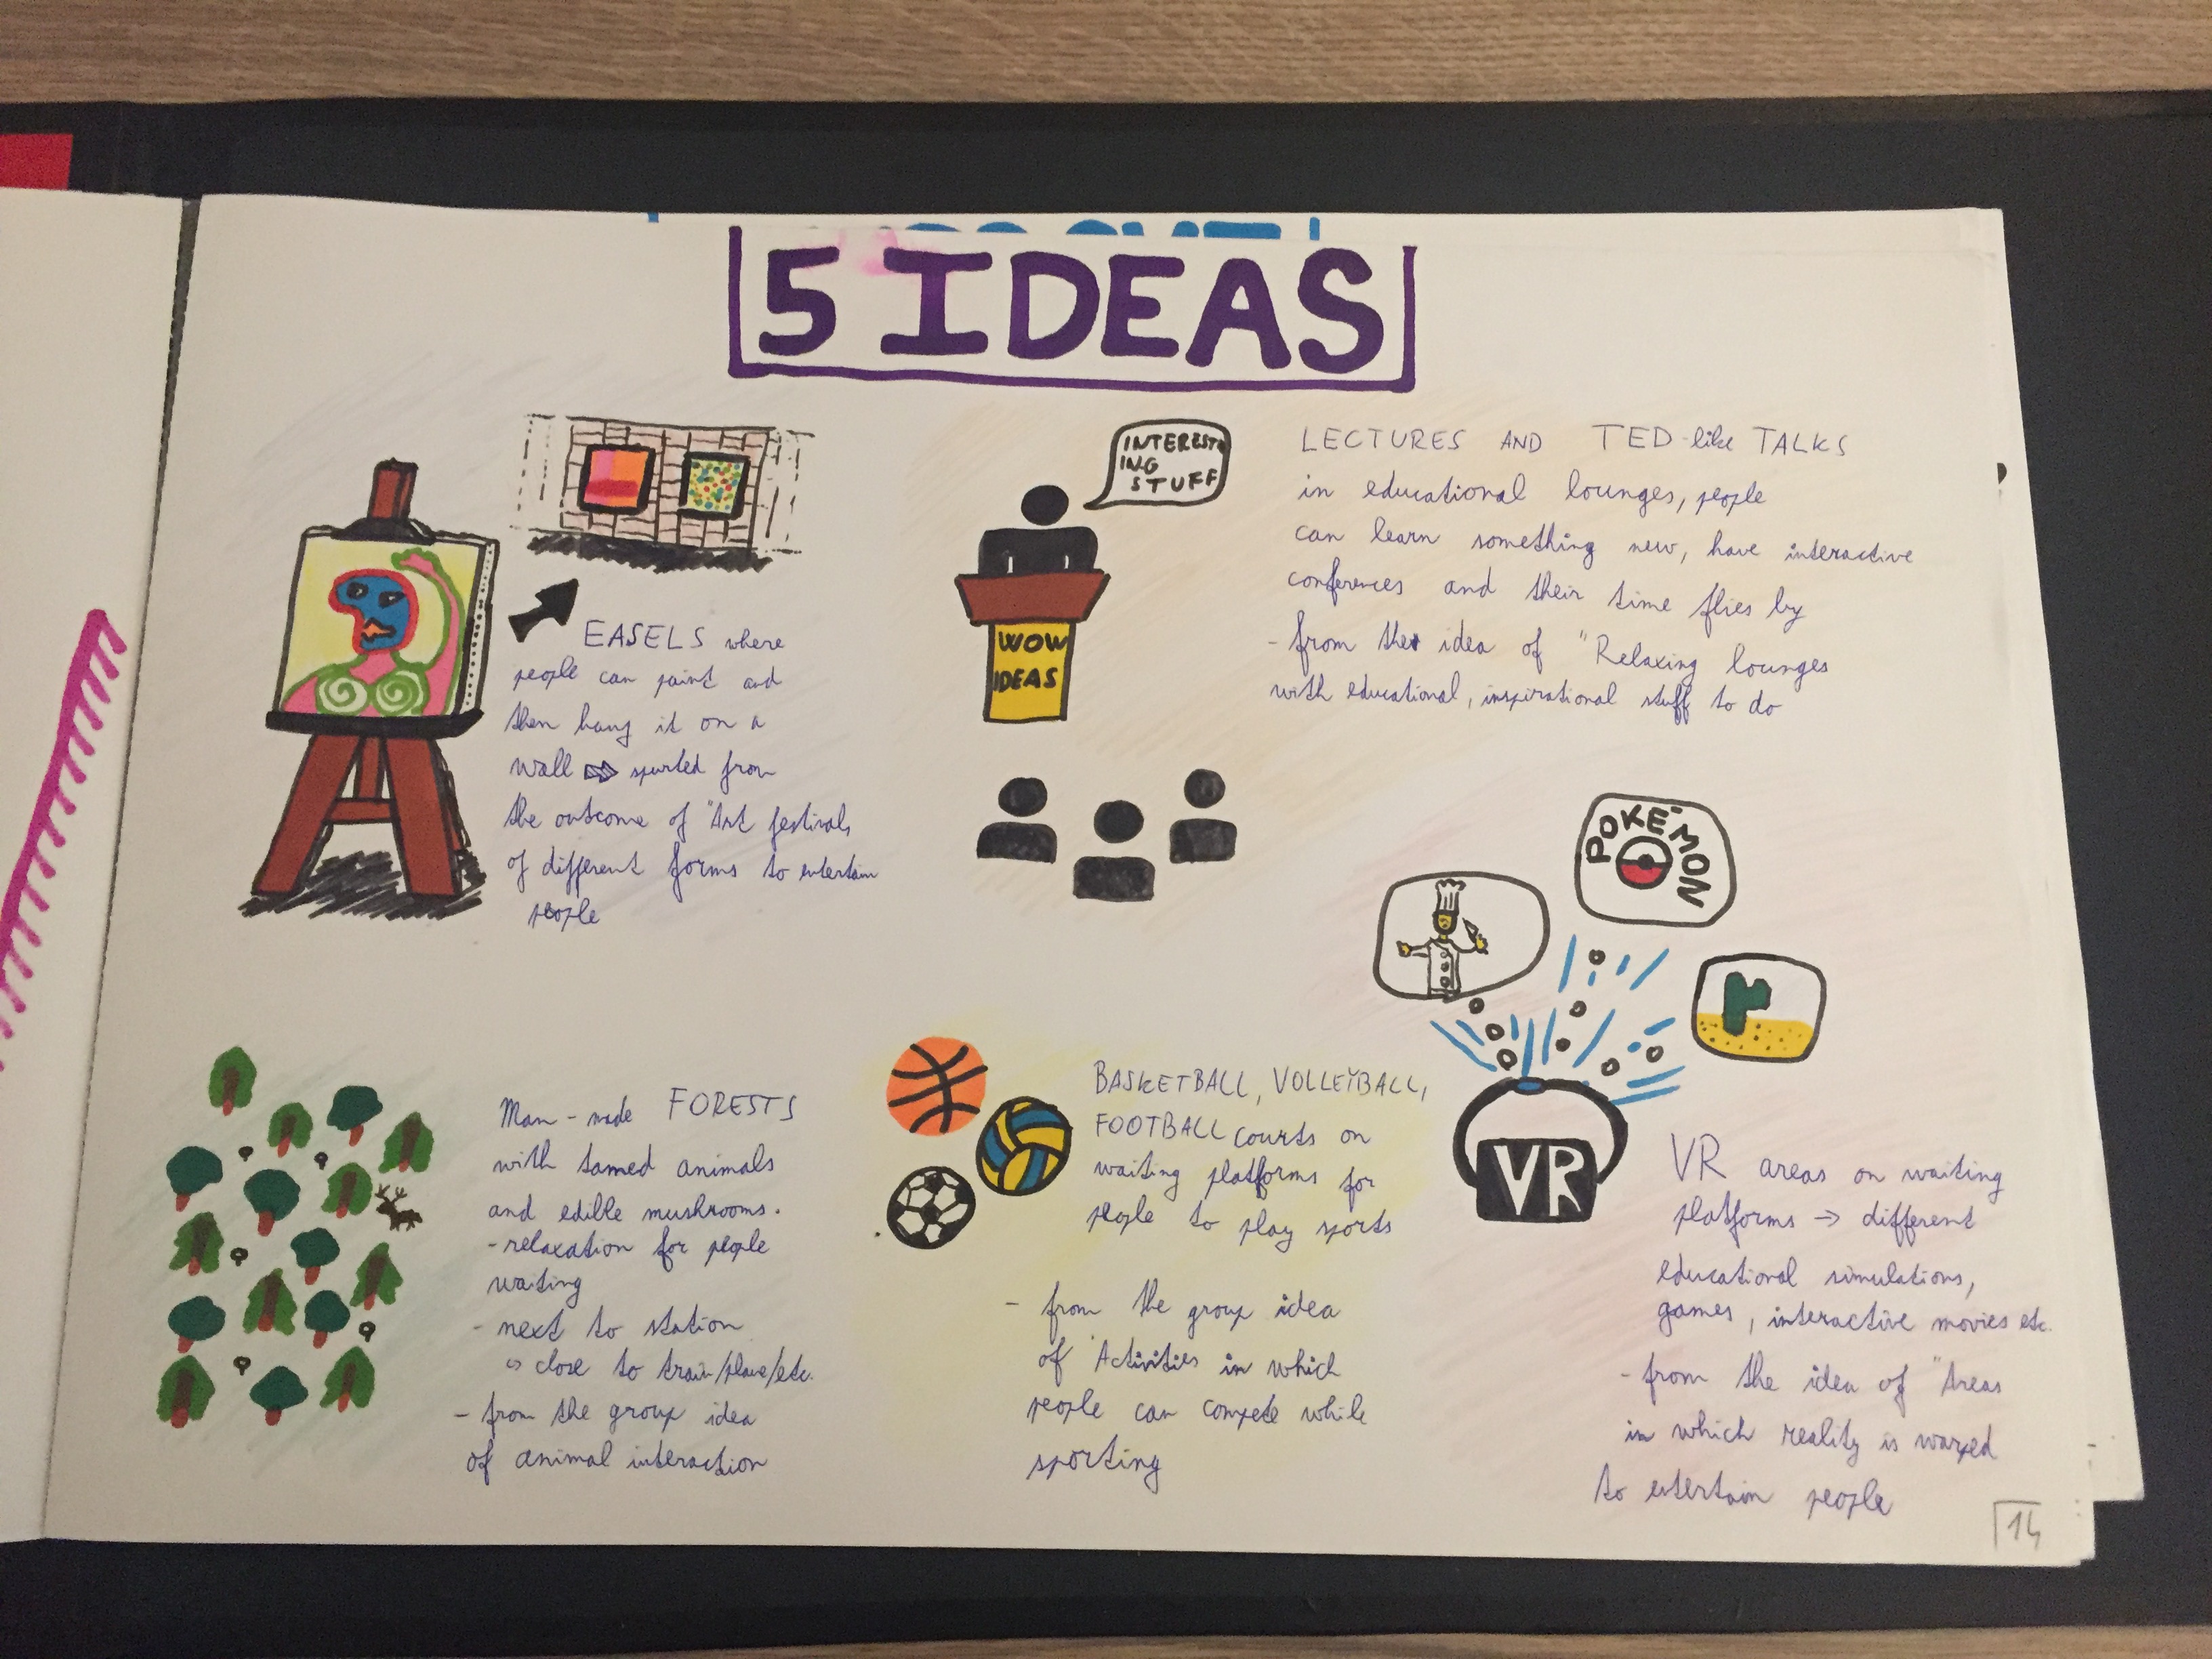 5 IDEAS
EASELS where
people can paint and
then hang it on a
wall ⇨ spurted from
the outcome of "Art festivals
of different forms to entertain
people
INTEREST
ING
STUFF
WOW
IDEAS
LECTURES AND TED-like TALKS
in educational lounges, people
can learn something new, have interactive
conferences and their time flies by
- from the idea of "Relaxing lounges
with educational, inspirational stuff to do
Man-made FORESTS
with tamed animals
and edible mushrooms.
- relaxation for people
waiting
- next to station
close to train/plane/etc.
- from the group idea
of animal interaction
BASKETBALL, VOLLEYBALL,
FOOTBALL courts on
waiting platforms for
people to play sports
- from the group idea
of "Activities in which
people can compete while
sporting
POKÉMON
VR
VR areas on waiting
platforms → different
educational simulations,
games, interactive movies etc.
- from the idea of "Areas
in which reality is warped
to entertain people
14